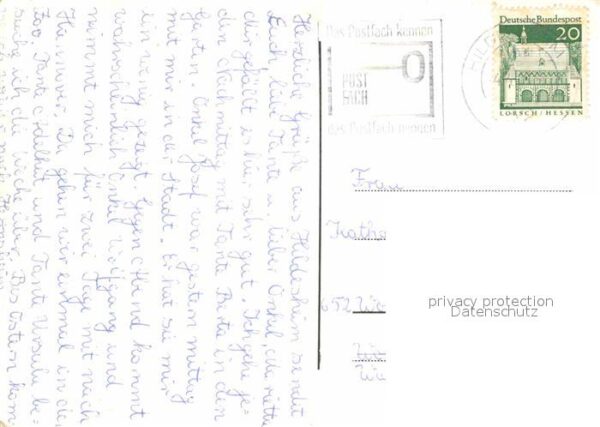 Herzliche Grüße aus Hildesheim sendet
Euch, liebe Tante u. lieber Onkel,
der gefällt es hier sehr gut. Ich gehe je-
den Nachmittag mit Tante Beate in den
Garten. Onkel Josef war gestern mittag
mit mir in der Stadt. Er hat sie mir
ein wenig gezeigt. Gegen Abend kommt
wahrscheinlich Onkel Wolfgang und
nimmt mich für zwei Tage mit nach
Hannover. Da gehen wir einmal in den
Zoo. Tante Adelheit und Tante Ursula be-
suche ich die Woche über. Bis Ostern kom
Das Postfach kennen
POST
FACH
das Postfach nennen
Deutsche Bundespost
20
LORSCH/HESSEN
Frau
Katha
652 Wo
privacy protection
Datenschutz